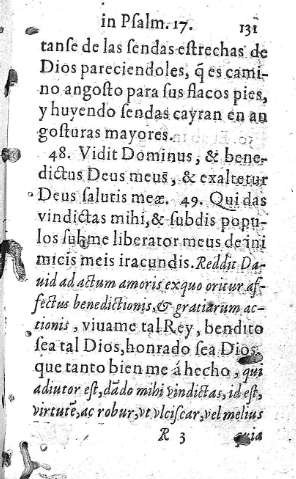 in Psalm. 17. 131
tanse de las sendas estrechas de
Dios pareciendoles, q̃ es cami-
no angosto para sus flacos pies,
y huyendo sendas cayran en an
gosturas mayores.
48. Vidit Dominus, & bene-
dictus Deus meus, & exaltetur
Deus salutis meæ. 49. Qui das
vindictas mihi, & subdis popu-
los sub me liberator meus de ini
micis meis iracundis. Reddit Da-
uid ad actum amoris ex quo oritur af-
fectus benedictionis, & gratiarum ac-
tionis, viuame tal Rey, bendito
sea tal Dios, honrado sea Dios
que tanto bien me á hecho, qui
adiutor est, dãdo mihi vindictas, id est,
virtutẽ, ac robur, vt vlciscar, vel melius
R 3 quia